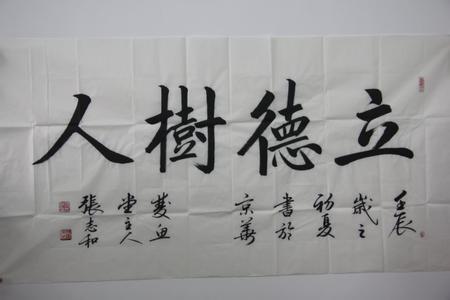 立德樹人
壬辰
歲之
初夏
書於
京華
雙魚
堂主人
張志和